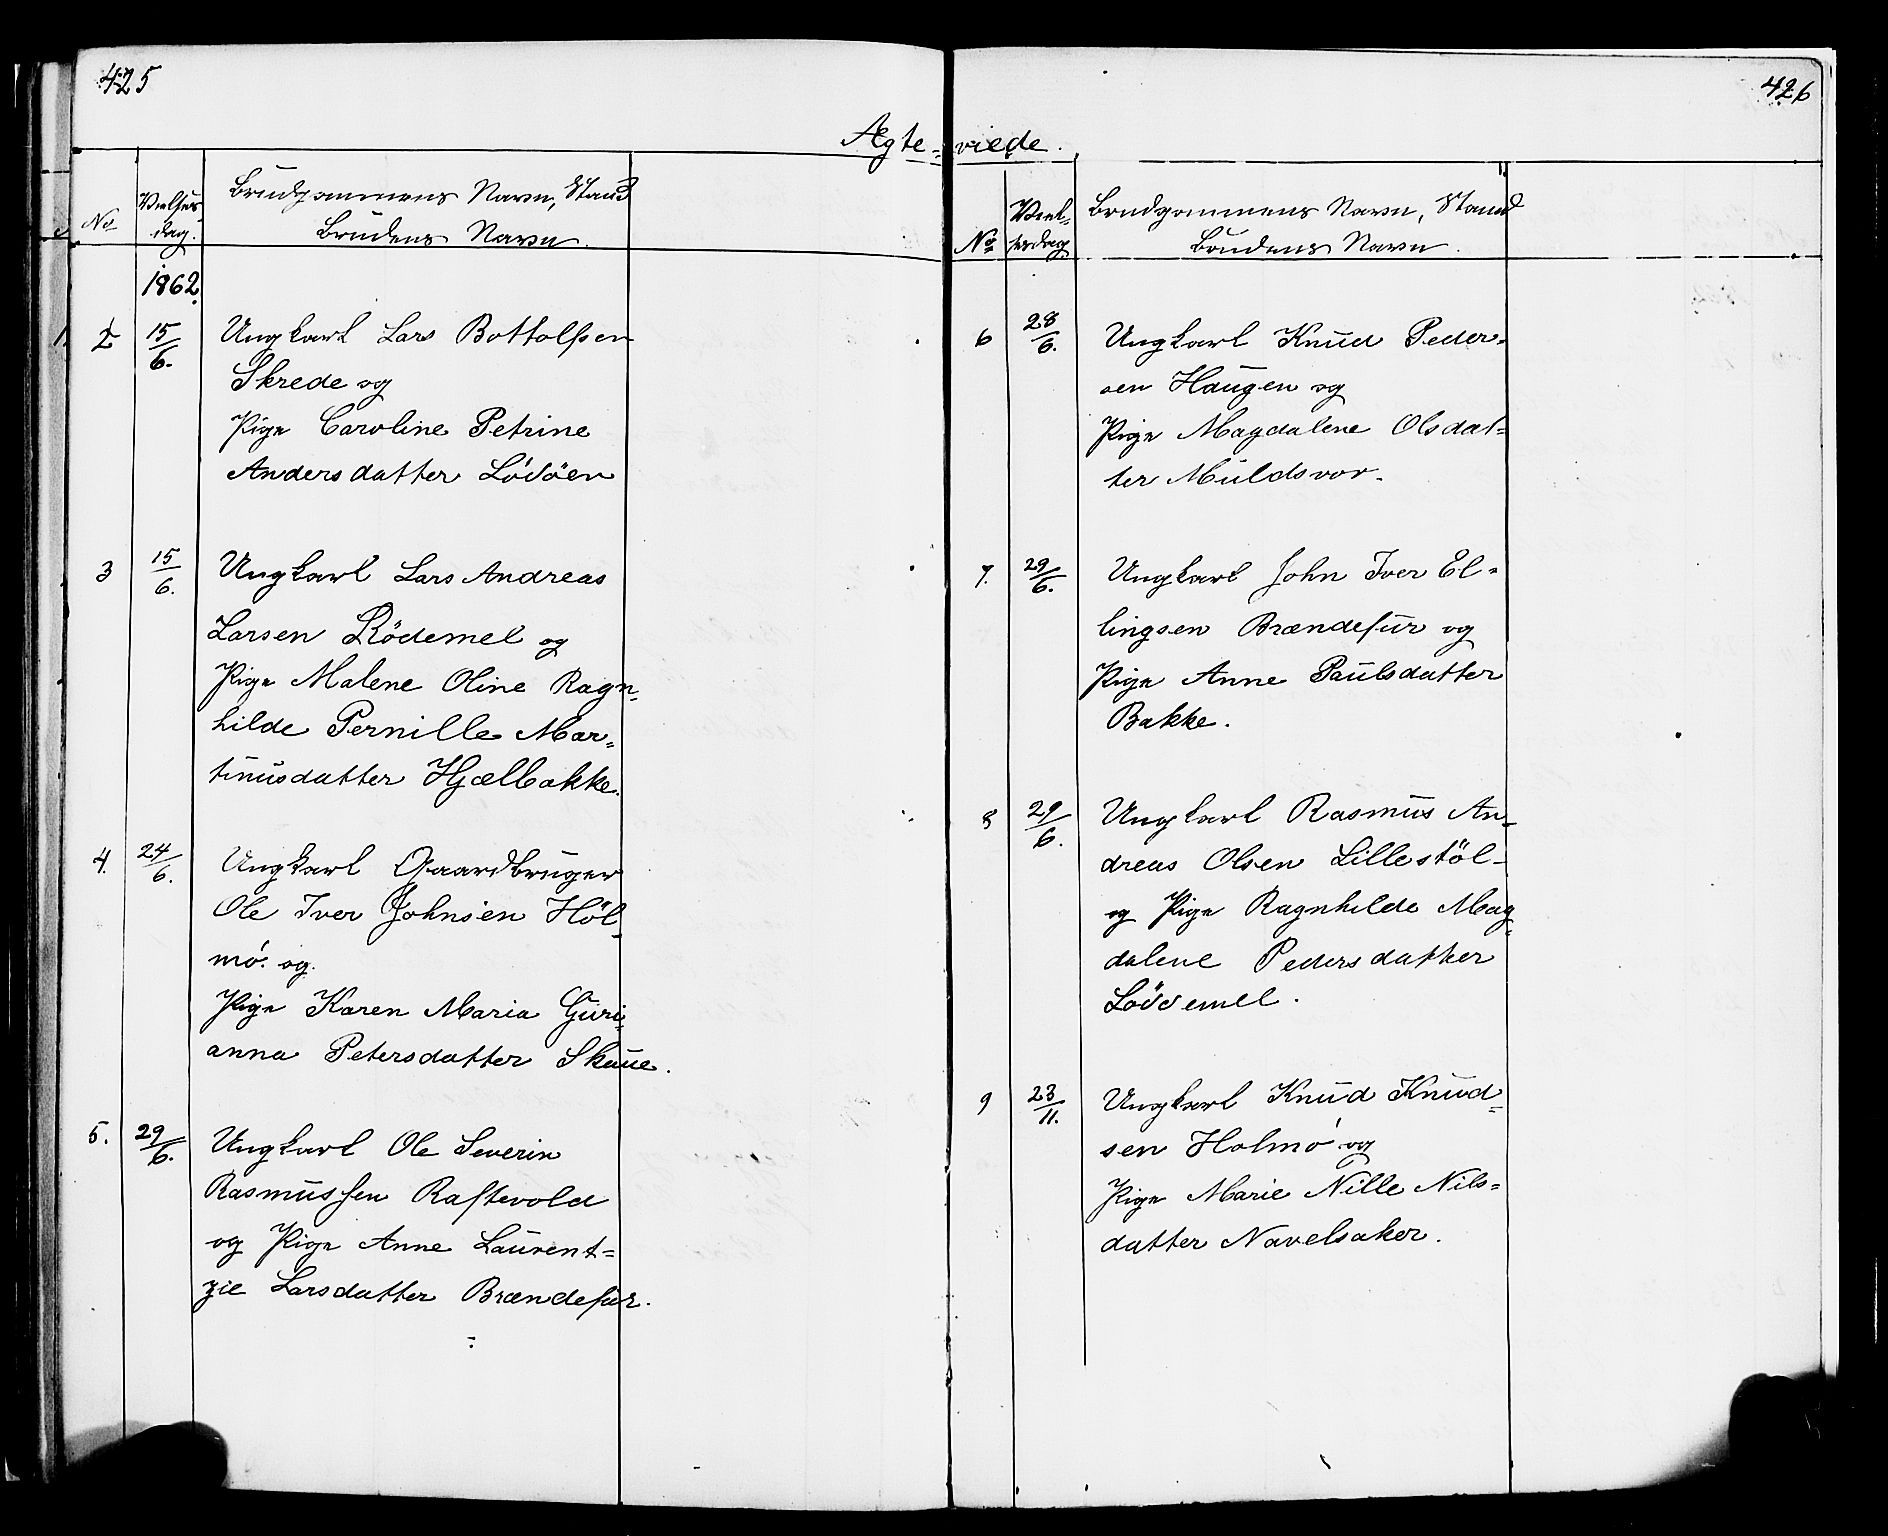 425
426
Ægte-viede.
No
Vielses
dag.
Brudgommens Navn, Stand
Brudens Navn.
1862.
2
15/6.
Ungkarl Lars Bottolfsen
Skrede og
Pige Caroline Petrine
Andersdatter Lödöen
3
15/6.
Ungkarl Lars Andreas
Larsen Rödemel og
Pige Malene Oline Ragn-
hilde Pernille Mar-
tinusdatter Hjælbakke.
4.
24/6.
Ungkarl Gaardbruger
Ole Iver Johnsen Höl-
mö. og.
Pige Karen Maria Guri-
anna Petersdatter Skaue.
5.
29/6.
Ungkarl Ole Severin
Rasmussen Raftevold
og Pige Anne Laurent=
zie Larsdatter Brændefur.
No
Viel-
sesdag
Brudgommens Navn, Stand
Brudens Navn.
6
28/6.
Ungkarl Knud Peder-
sen Haugen og
Pige Magdalene Olsdat=
ter Muldsvor.
7.
29/6.
Ungkarl John Iver El-
lingsen Brændefur og
Pige Anne Paulsdatter
Bakke.
8
29/6.
Ungkarl Rasmus An-
dreas Olsen Lillestöl-
og Pige Ragnhilde Mag-
dalene Pedersdatter
Lödemel.
9
23/11.
Ungkarl Knud Knud-
sen Holmö og
Pige Marie Nille Nils=
datter Navelsaker.